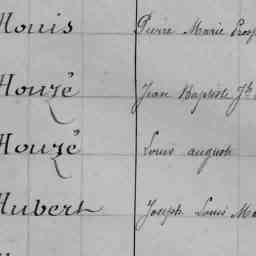 Houis Pierre Marie Prosp
Houzé Jean Baptiste Jh
Houzé Louis august
Hubert Joseph Louis Ma